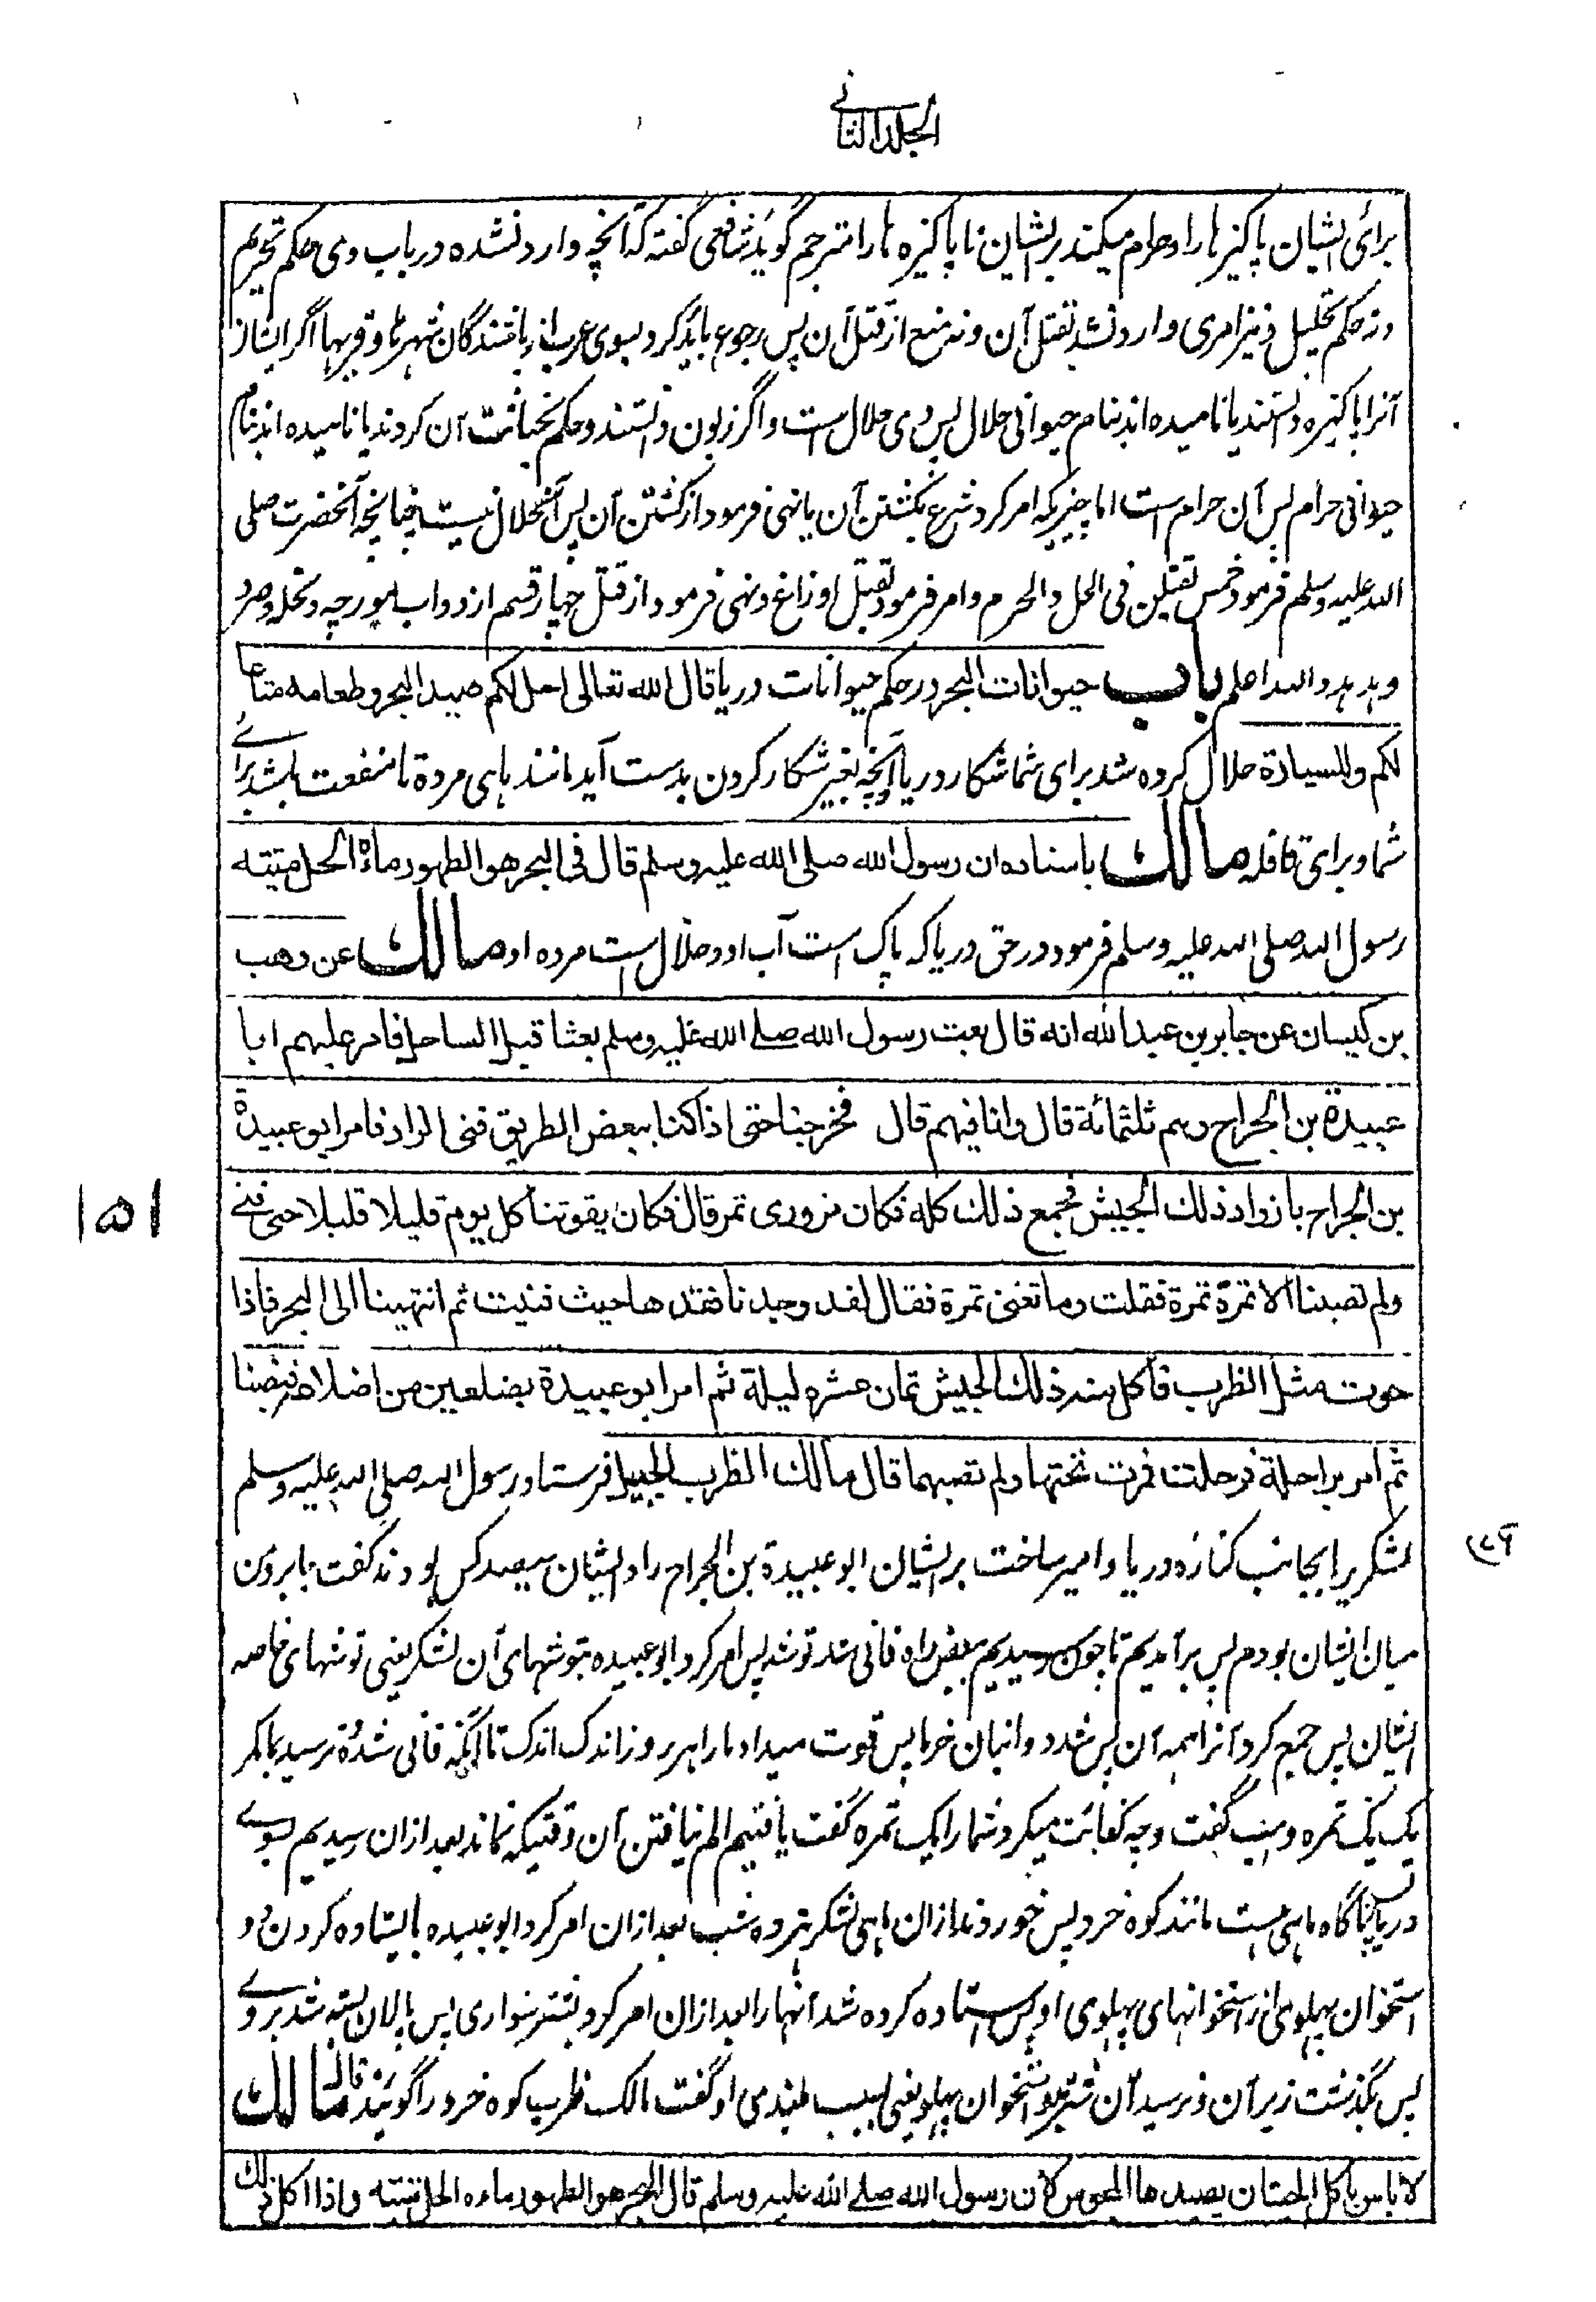 الجلد الثانی
برای ایشان پاکیزہا را و حرام میکند بر ایشان ناپاکیزہ ہا را مترجم گوید شافعی گفتہ کہ آنچہ وارد نشدہ در باب وی حکم تحریم
و نہ حکم تحلیل و نیز امری وارد نشد بقتل آن و نہ منع از قتل آن پس رجوع باید کرد بسوی عرب از باشندگان شہرہا و قریہا اگر ایشان
آنرا پاکیزہ دانستند یا نامیدہ اند بنام حیوانی حلال پس وی حلال است و اگر زبون دانستند و حکم بخباثت آن کردند یا نامیدہ اند بنام
حیوانی حرام پس آن حرام است اما چیزیکہ امر کرد شرع بکشتن آن یا نہی فرمود از کشتن آن پس آن حلال نیست چنانچہ آنحضرت صلی
اللہ علیہ وسلم فرمود خمس یقتلن فی الحل والحرم و امر فرمود بقتل اوزاغ و نہی فرمود از قتل چہار قسم از دواب مورچہ و نحلہ و صرد
و ہدہد واللہ اعلم باب حیوانات البحر در حکم حیوانات دریا قال اللہ تعالی احل لکم صید البحر وطعامہ متاعا
لکم وللسیارۃ حلال کردہ شد برای شما شکار دریا و آنچہ بغیر شکار کردن بدست آید مانند ماہی مردہ تا منفعت باشد برائے
شما و برای قافلہ مالک باسنادہ ان رسول اللہ صلی اللہ علیہ وسلم قال فی البحر ھو الطھور ماؤہ الحل میتتہ
رسول اللہ صلی اللہ علیہ وسلم فرمود در حق دریا کہ پاک است آب او و حلال است مردہ او مالک عن وھب
بن کیسان عن جابر بن عبد اللہ انہ قال بعث رسول اللہ صلے اللہ علیہ وسلم بعثا قبل الساحل فامر علیھم ابا
عبیدۃ بن الجراح وھم ثلثمائۃ قال وانا فیھم قال فخرجنا حتی اذا کنا ببعض الطریق فنی الزاد فامر ابو عبیدۃ
بن الجراح بازواد ذلک الجیش فجمع ذلک کلہ فکان مزودی تمر قال فکان یقوتنا کل یوم قلیلا قلیلا حتی فنے
ولم تصبنا الا تمرۃ تمرۃ فقلت وما تغنی تمرۃ فقال لقد وجدنا فقدھا حیث فنیت ثم انتھینا الی البحر فاذا
حوت مثل الظرب فاکل منہ ذلک الجیش ثمان عشرہ لیلۃ ثم امر ابو عبیدۃ بضلعین من اضلاعہ فنصبنا
ثم امر براحلۃ فرحلت فمرت تحتھا ولم تصبھما قال مالک الظرب الجبیل فرستاد رسول اللہ صلی اللہ علیہ وسلم
لشکریرا بجانب کنارہ دریا و امیر ساخت بر ایشان ابو عبیدۃ بن الجراح را و ایشان سیصد کس بودند گفت جابر و من
میان ایشان بودم پس برآمدیم تا چون رسیدیم ببعض راہ فانی شد توشہ پس امر کرد ابو عبیدہ بتوشہای آن لشکر یعنی توشہای خاصہ
ایشان پس جمع کرد آنرا ہمہ آن پس شد دو انبان خرما پس قوت میداد ما را ہر روز اندک اندک تا آنکہ فانی شد و نرسید بما مگر
یک یک تمرہ وہب گفت و چہ کفایت میکرد شما را یک تمرہ گفت یافتیم الم نیافتن آن وقتیکہ نماند بعد ازان رسیدیم بسوے
دریا پس ناگاہ ماہی ہست مانند کوہ خرد پس خوردند ازان ماہی لشکر ہژدہ شب بعد ازان امر کرد ابو عبیدہ بایستادہ کردن دو
استخوان پہلوی از استخوانہای پہلوی او پس استادہ کردہ شد آنہا را بعد ازان امر کرد بشتر سواری پس پالان بستہ شد بروے
پس بگذشت زیر آن و نرسید آن شتر باستخوان پہلو یعنی بسبب بلندی او گفت مالک ظرب کوہ خرد را گویند قال مالک
لا باس باکل الحیتان یصیدھا المجوس لان رسول اللہ صلے اللہ علیہ وسلم قال البحر ھو الطھور ماءہ الحل میتتہ واذا اکل ذلک
۱۵۱